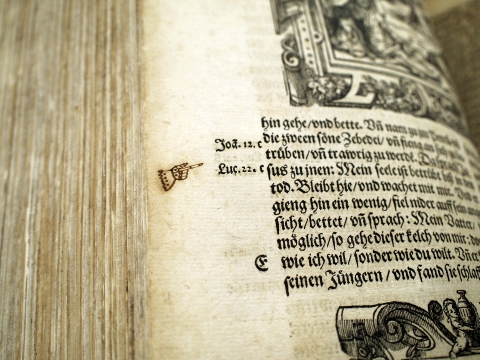 hin gehe/vnd bette. Vñ nam zu
Joã. 12. c die zween söne Zebedei/ vñ fieng an
trüben/ vñ trawrig zu werdē. Da
Luc. 22. c sus zu jnen: Mein seele ist betrübt biß
tod. Bleibt hie/ vnd wachet mit mir. Vnd
gieng hin ein wenig/ fiel nider auff sein
sicht/ bettet/ vñ sprach: Mein Vatter/
möglich/ so gehe dieser kelch von mir:
E wie ich wil/ sonder wie du wilt. Vñ er
seinen Jüngern/ vnd fand sie schlaff